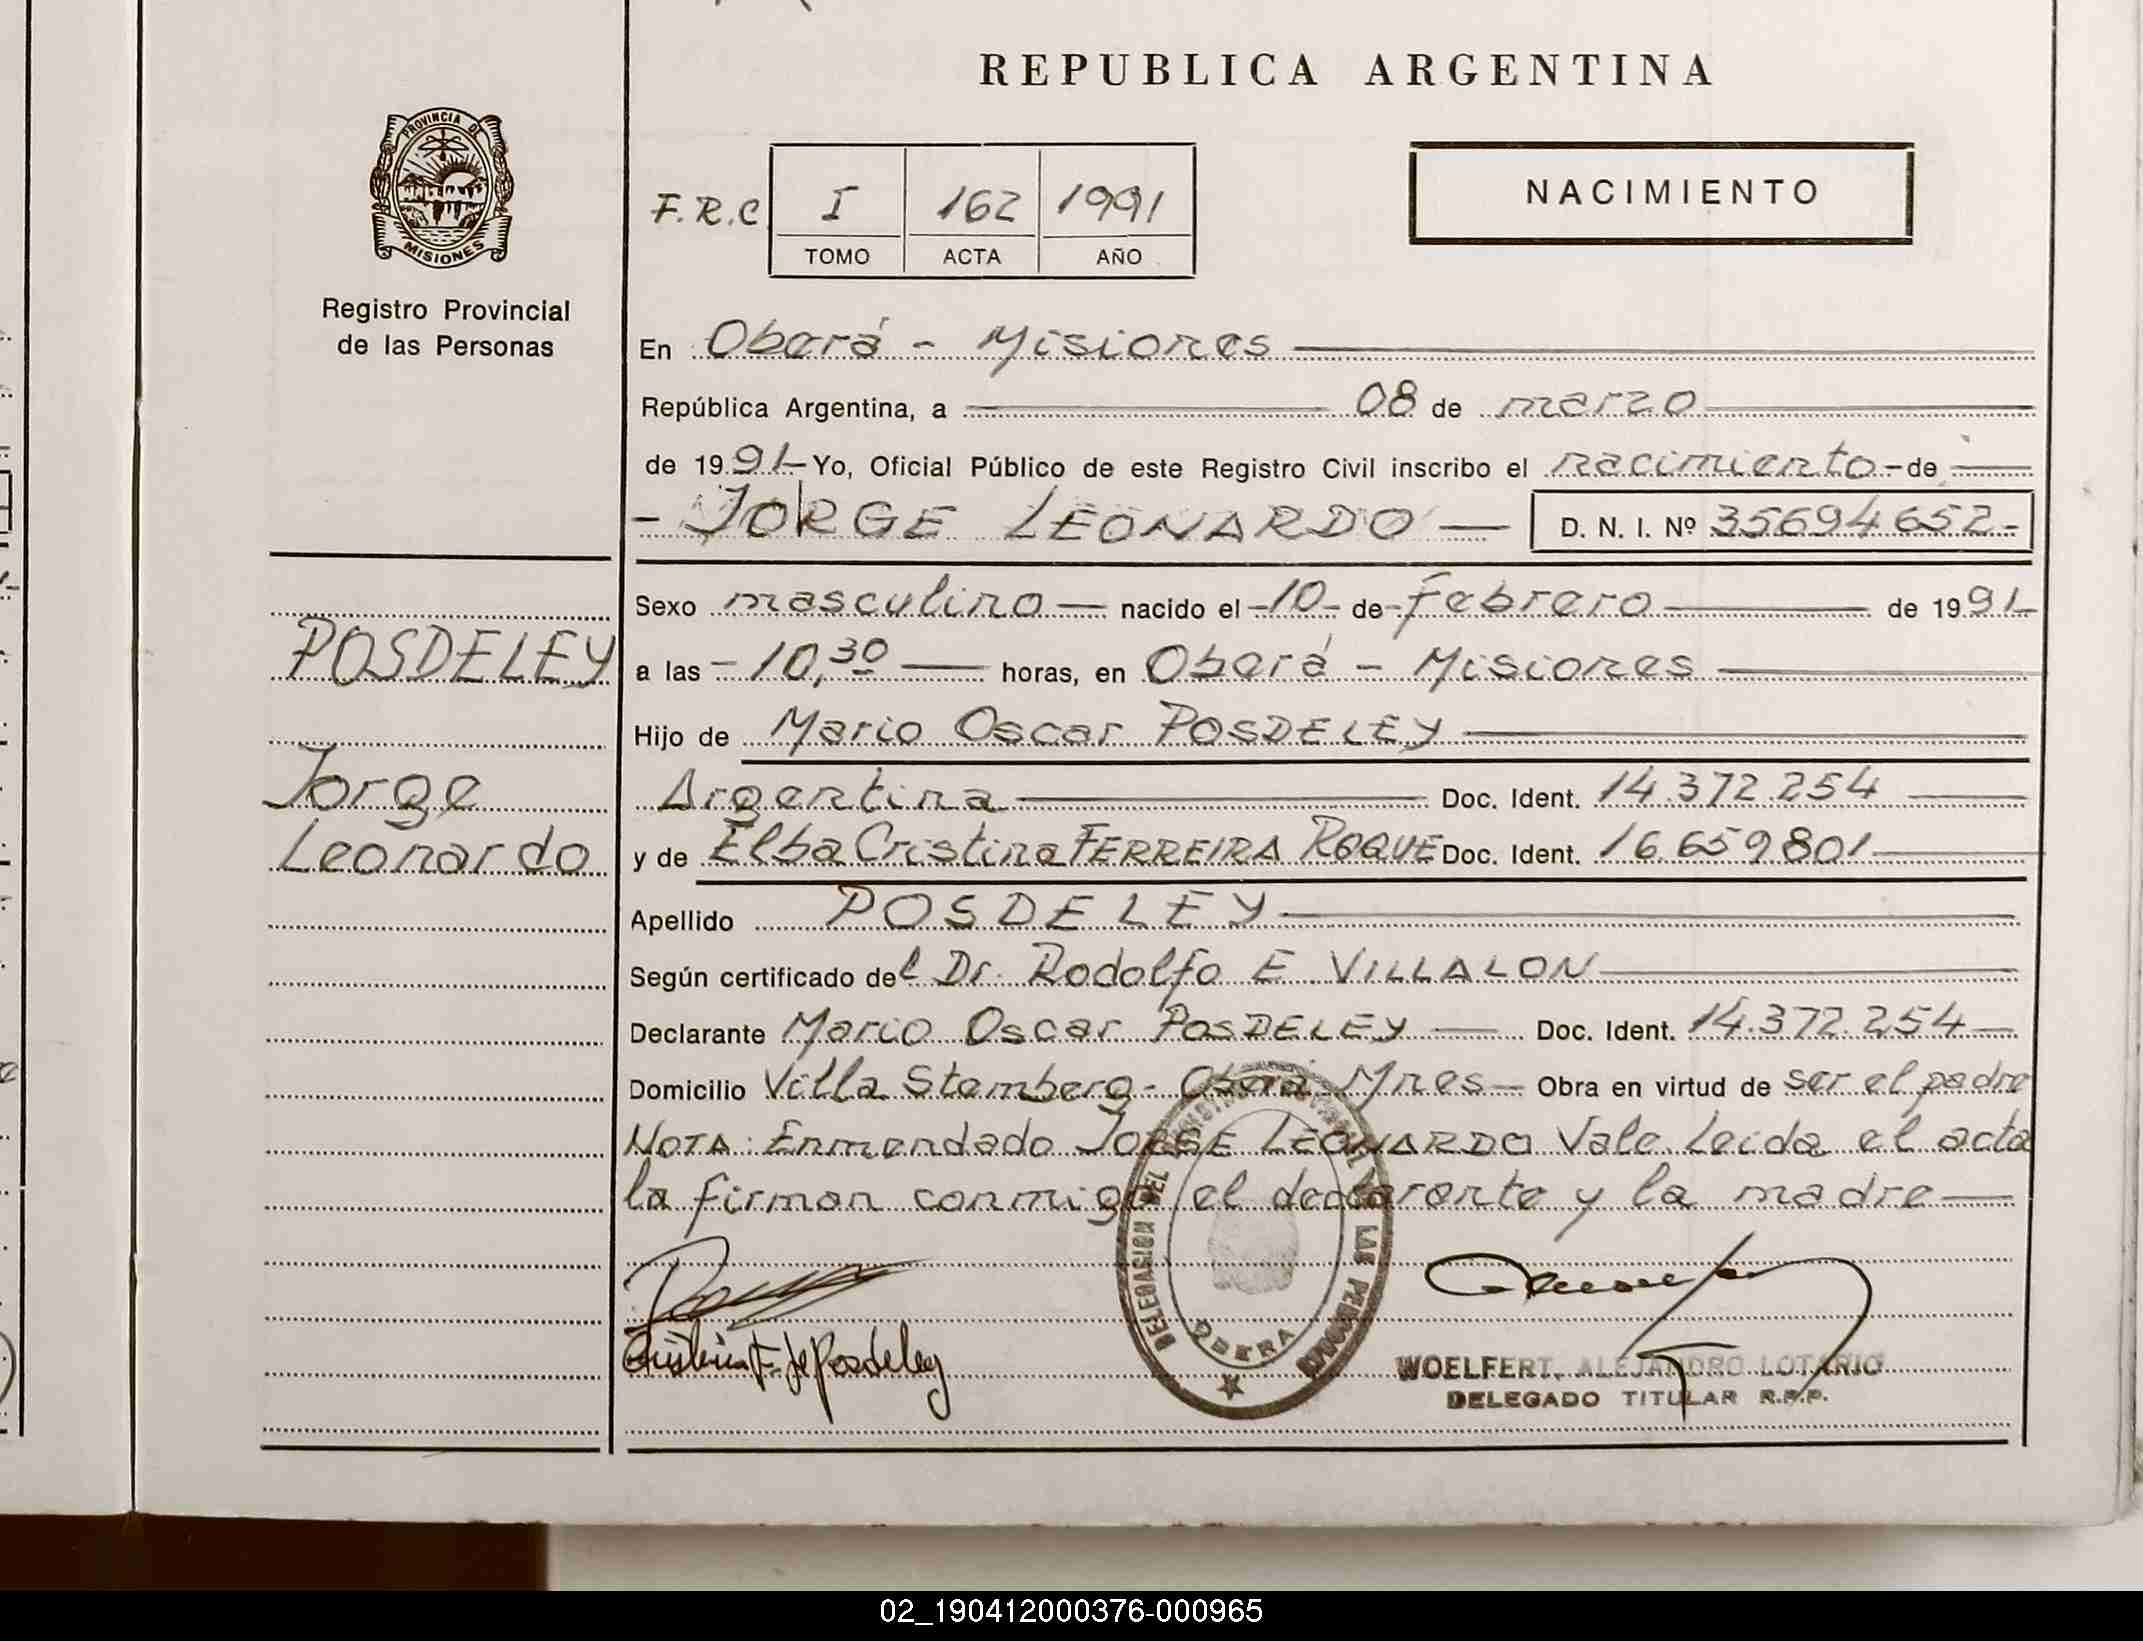 REPUBLICA ARGENTINA
PROVINCIA DE
MISIONES
Registro Provincial
de las Personas
F.R.C. I 162 1991
TOMO ACTA AÑO
NACIMIENTO
En Oberá - Misiones
República Argentina, a 08 de marzo
de 1991 Yo, Oficial Público de este Registro Civil inscribo el nacimiento - de
- JORGE LEONARDO - D. N. I. Nº 35694652-
Sexo masculino nacido el - 10 - de - Febrero de 1991
POSDELEY
a las - 10,30 horas, en Oberá - Misiones
Hijo de Mario Oscar POSDELEY
Jorge
Argentina Doc. Ident. 14.372.254
Leonardo
y de Elba Cristina FERREIRA ROQUE Doc. Ident. 16.659801
Apellido POSDELEY
Según certificado del Dr. Rodolfo E. VILLALON
Declarante Mario Oscar POSDELEY Doc. Ident. 14.372.254
Domicilio Villa Stemberg - Oberá Mnes Obra en virtud de ser el padre
NOTA: Enmendado JORGE LEONARDO Vale. Leida el acta
la firman conmigo el declarante y la madre
DELEGACION DEL LAS PERSONAS
OBERA
Cristina F. de Posdeley
WOELFERT, ALEJANDRO LOTARIO
DELEGADO TITULAR R.P.P.
02_190412000376-000965